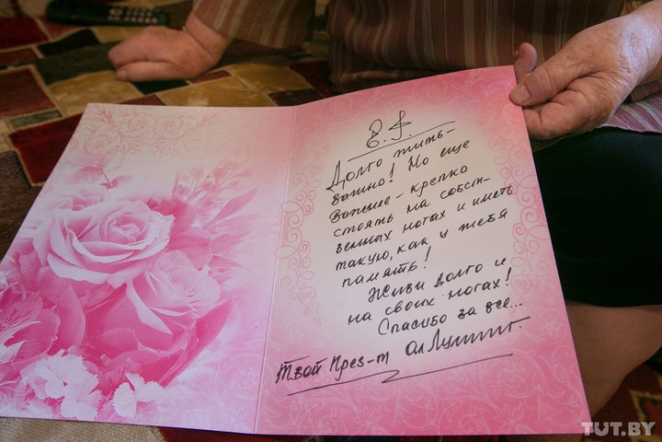 Е.Г.
Долго жить –
важно! Но еще
важнее – крепко
стоять на собст-
венных ногах и иметь
такую, как у тебя
память!
Живи долго и
на своих ногах!
Спасибо за все...
Твой През-т
TUT.BY